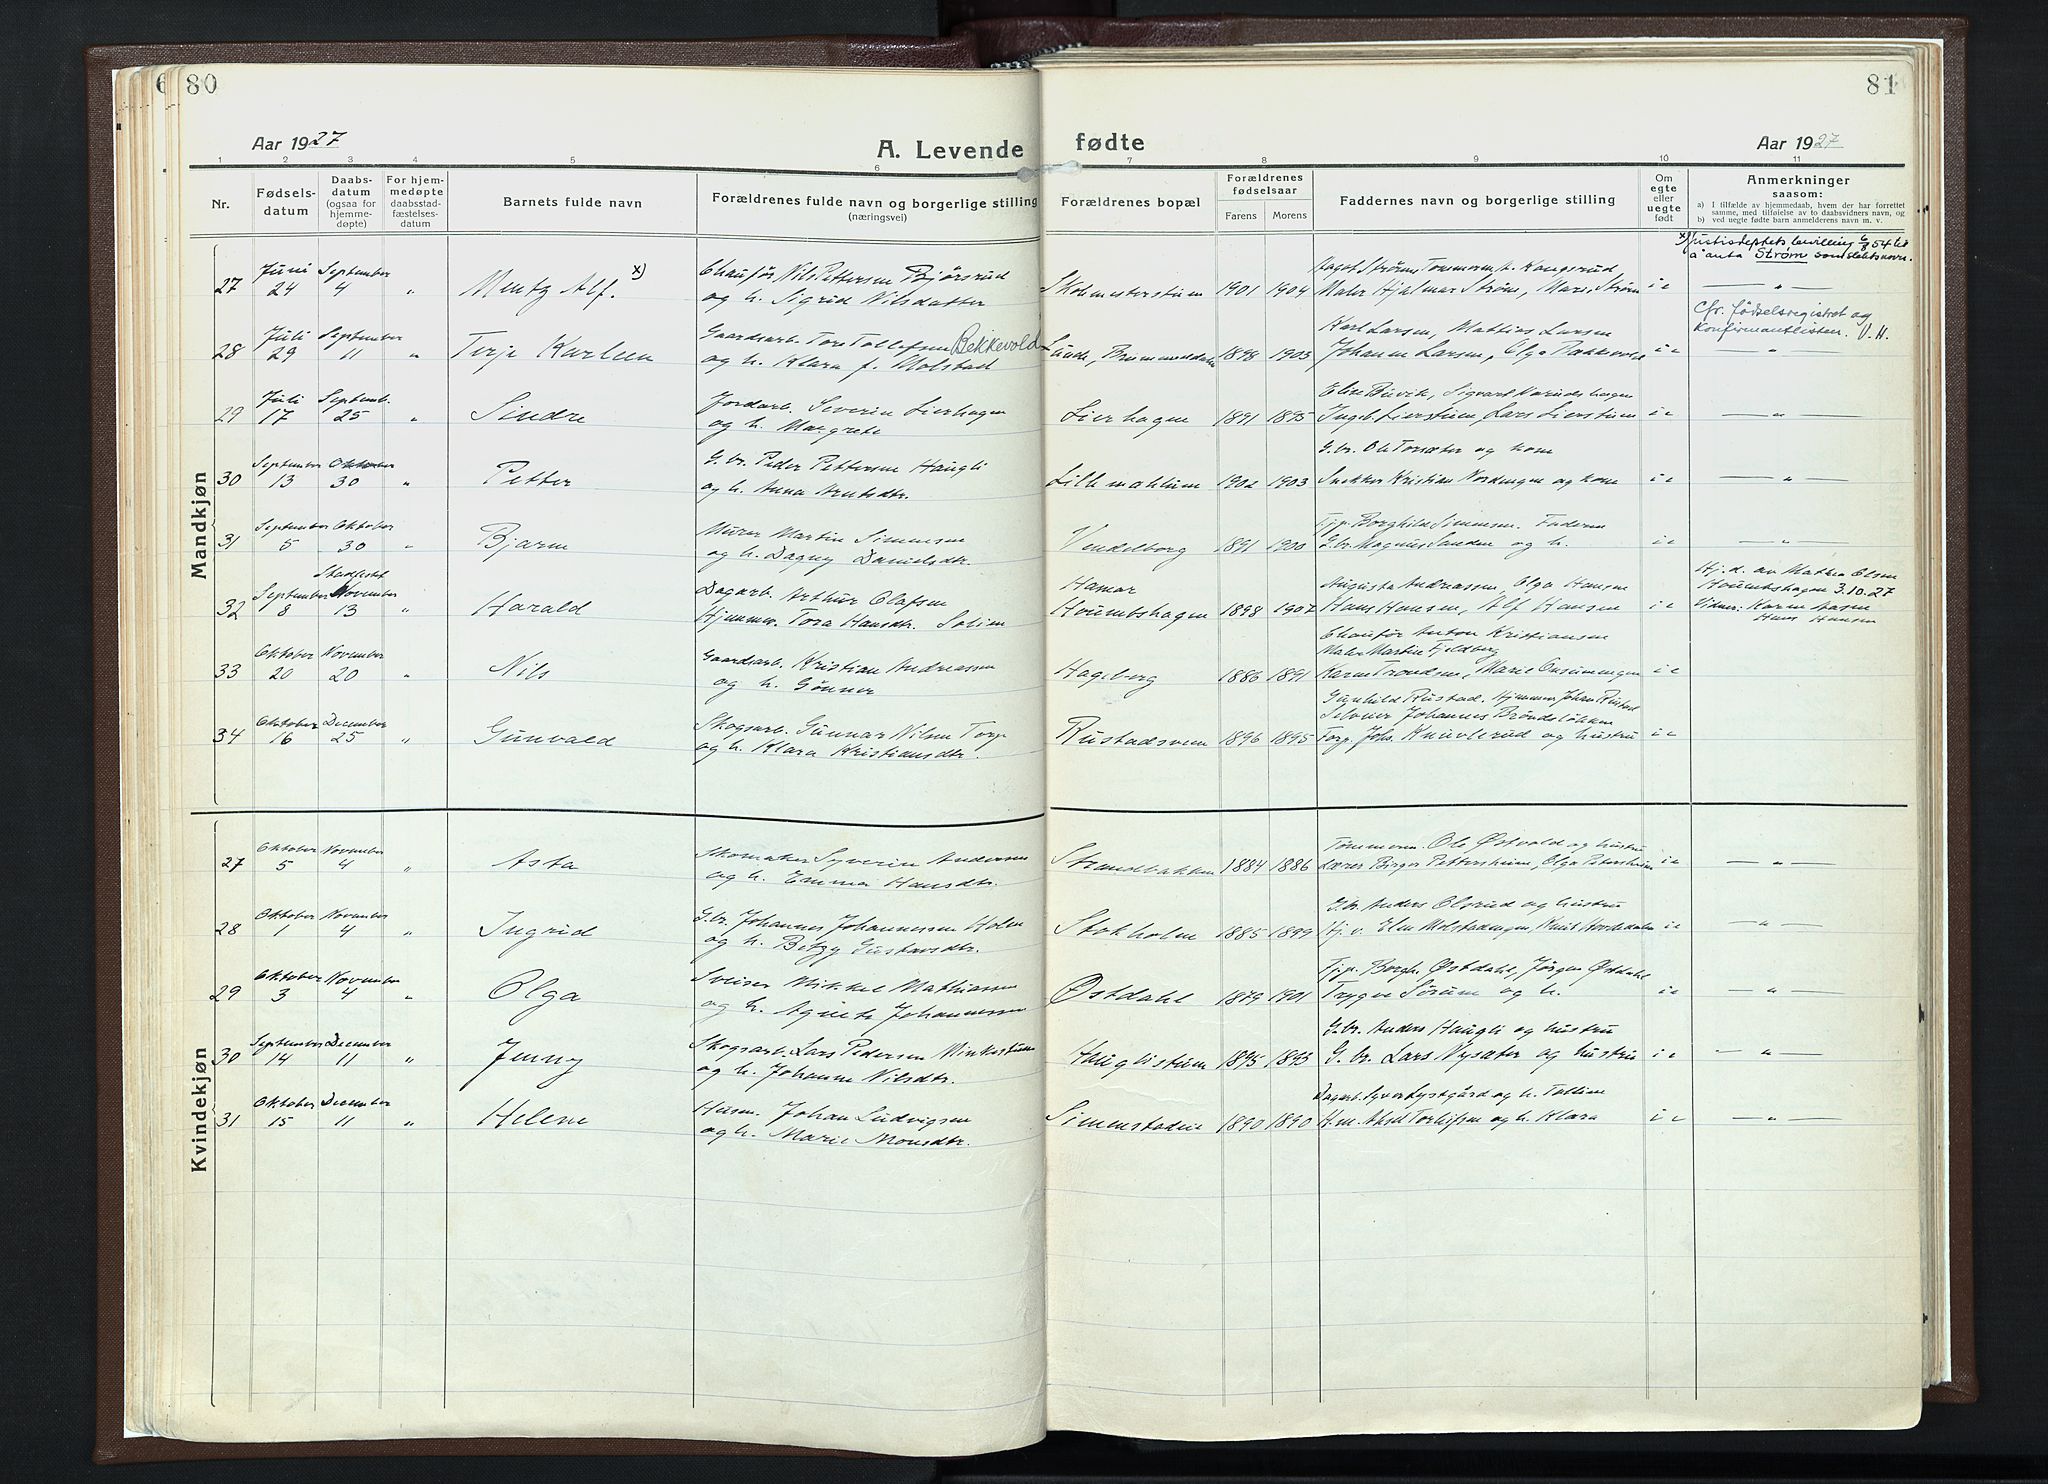 80
81
Aar 1927
A. Levende
fødte
Aar 1927
1 2 3 4 5 6 7 8 9 10 11
Nr.
Fødsels-
datum
Daabs-
datum
(ogsaa for
hjemme-
døpte)
For hjem-
medøpte
daabsstad-
fæstelses-
datum
Barnets fulde navn
Forældrenes fulde navn og borgerlige stilling
(næringsvei)
Forældrenes bopæl
Forældrenes
fødselsaar
Farens
Morens
Faddernes navn og borgerlige stilling
Om
egte
eller
uegte
født
Anmerkninger
saasom:
a) I tilfælde av hjemmedaab, hvem der har forrettet
samme, med tilføielse av to daabsvidners navn, og
b) ved uegte fødte barn anmelderens navn m. v.
Mandkjøn
x) Justisdeptets bevilling 6/8 54 til
å anta Strøm som slektsnavn.
Juni September Chaufør Nils Pettersen Bjørsrud
27 24 4 " Mentz Alf. x) og h. Sigrid Nilsdatter 1901 1904 Maler Hjalmar Strøm, Strøm i e — " —
Cfr. fødselsregistret og
konfirmantlisten. V.H.
Juli September Gaardsarb. Tore Tollefsen Bekkevold Karl Larsen, Mathias Larsen
28 29 11 " Terje Karleen og h. Klara f. Molstad 1898 1903 Johanne Larsen, Olga i e "
Juli Septemb. Jordarb. Severin Lierhagen
29 17 25 " Sindre og h. Margrete Lierhagen 1891 1895 Ingeb. Lierstuen, Lars Lierstuen i e — " —
September Oktober G. br. Peder Pettersen Haugli G. br. Ole Torsæter og kone
30 13 30 " Petter og h. Anna Lillemæhlum 1902 1903 Snekker Kristian Nordengen og kone i e — " —
September Oktober Murer Martin Simensen Tjp. Borghild Simensen. Faderen
31 5 30 " Bjarne og h. Dagny Danielsdtr. Vendelborg 1891 1900 G. br. Magnus Sanden og h. i e — " —
Stadfestet
September November Dagarb. Arthur Olafsen Hamar Augusta Andreassen, Olga Hansen
32 8 13 " Harald Hjemmev. Tora Hansdtr. 1898 1907 Hans Hansen, Alf Hansen i e
Hj. d. av Mathea Olsen
3.10.27
Vidner: Karen
Hans Hansen
Oktober November Gaardsarb. Kristian Andreassen Chaufør Anton Kristiansen
Maler Martin Fjeldberg
33 20 20 " Nils og h. Gunner Hageberg 1886 1891 Karen Trondsen, Marie i e
Oktober December Skogsarb. Gunnar Nilsen Torp Gunhild Rustad. Johan Rustad
Johannes Brøndsløkken
34 16 25 " Gunvald og h. Klara Kristiansdtr. Rustadsveen 1896 1895 Torp. Johs. Knuvlerud og hustru i e
Kvindekjøn
Oktober November Skomaker Syverin Andersen Tømmerm. Ole Østvold og hustru
27 5 4 " Asta og h. Emma Hansdtr. Strandbakken 1884 1886 Lærer Birger Pettersheim, Olga Petersheim i e — " —
Oktober November G. br. Johannes Johannessen Holen G. br. Anders Olsrud og hustru
28 1 4 " Ingrid og h. Betzy Gustavsdtr. Stokholm 1885 1889 Hj. v. Elen Molstadengen, Knut i e — " —
Oktober November Sveiser Mikkel Mathiassen Tjp. Borgh. Østdahl, Jørgen Østdahl
29 3 4 " Olga og h. Agnete Johannessen Østdahl 1879 1901 Trygve Sørum og h. i e — " —
September December Skogsarb. Lars Pedersen G. br. Anders Haugli og hustru
30 14 11 " Jenny og h. Johanne Nilsdtr. Hauglistuen 1895 1893 G. br. Lars Nysæter og hustru i e — " —
Oktober December Husm. Johan Ludvigsen Dagarb. Syver Lystgård og h.
31 15 11 " Helene og h. Marie Monsdtr. Simenstadeie 1890 1890 H.m. Axel Torleifsen og h. Klara i e — " —